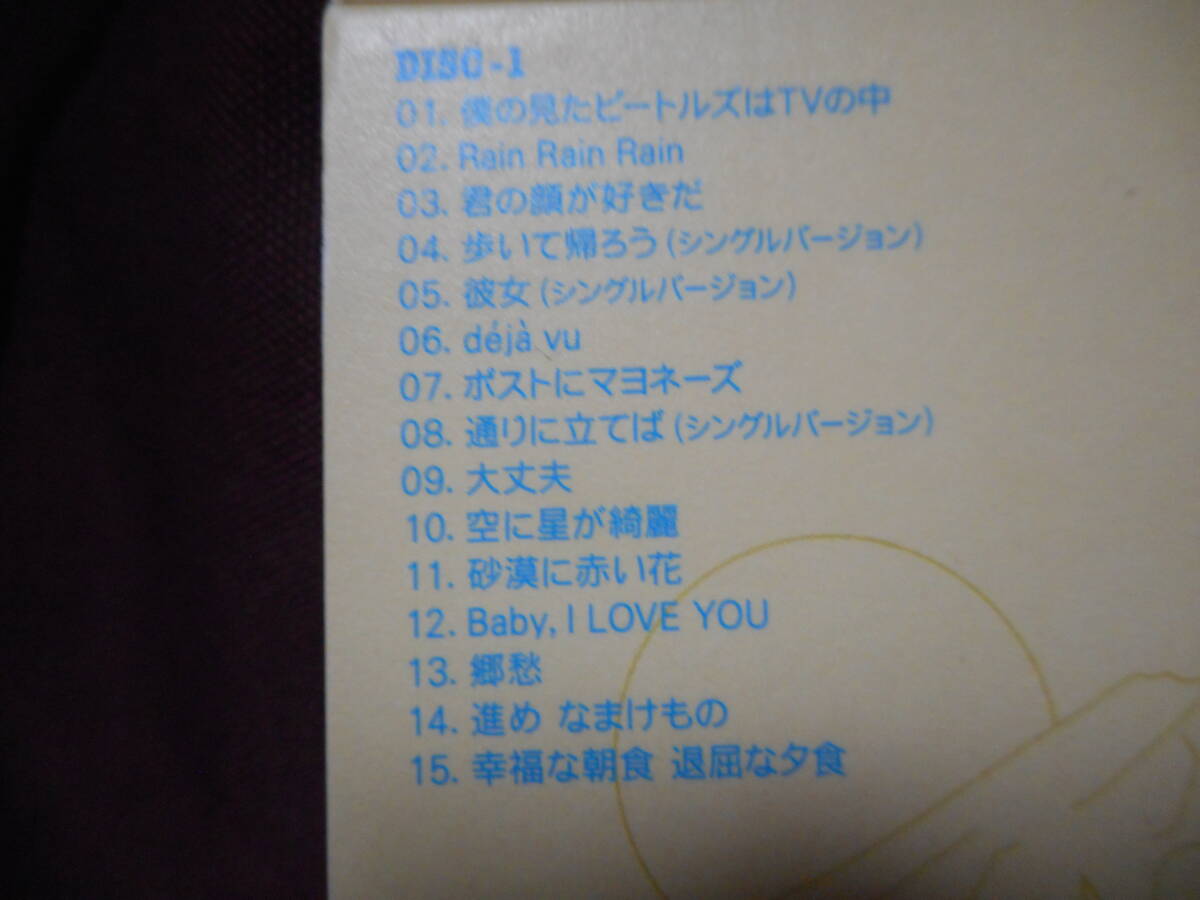 DISC-1
01. 僕の見たビートルズはTVの中
02. Rain Rain Rain
03. 君の顔が好きだ
04. 歩いて帰ろう(シングルバージョン)
05. 彼女(シングルバージョン)
06. déjà vu
07. ポストにマヨネーズ
08. 通りに立てば(シングルバージョン)
09. 大丈夫
10. 空に星が綺麗
11. 砂漠に赤い花
12. Baby, I LOVE YOU
13. 郷愁
14. 進め なまけもの
15. 幸福な朝食 退屈な夕食